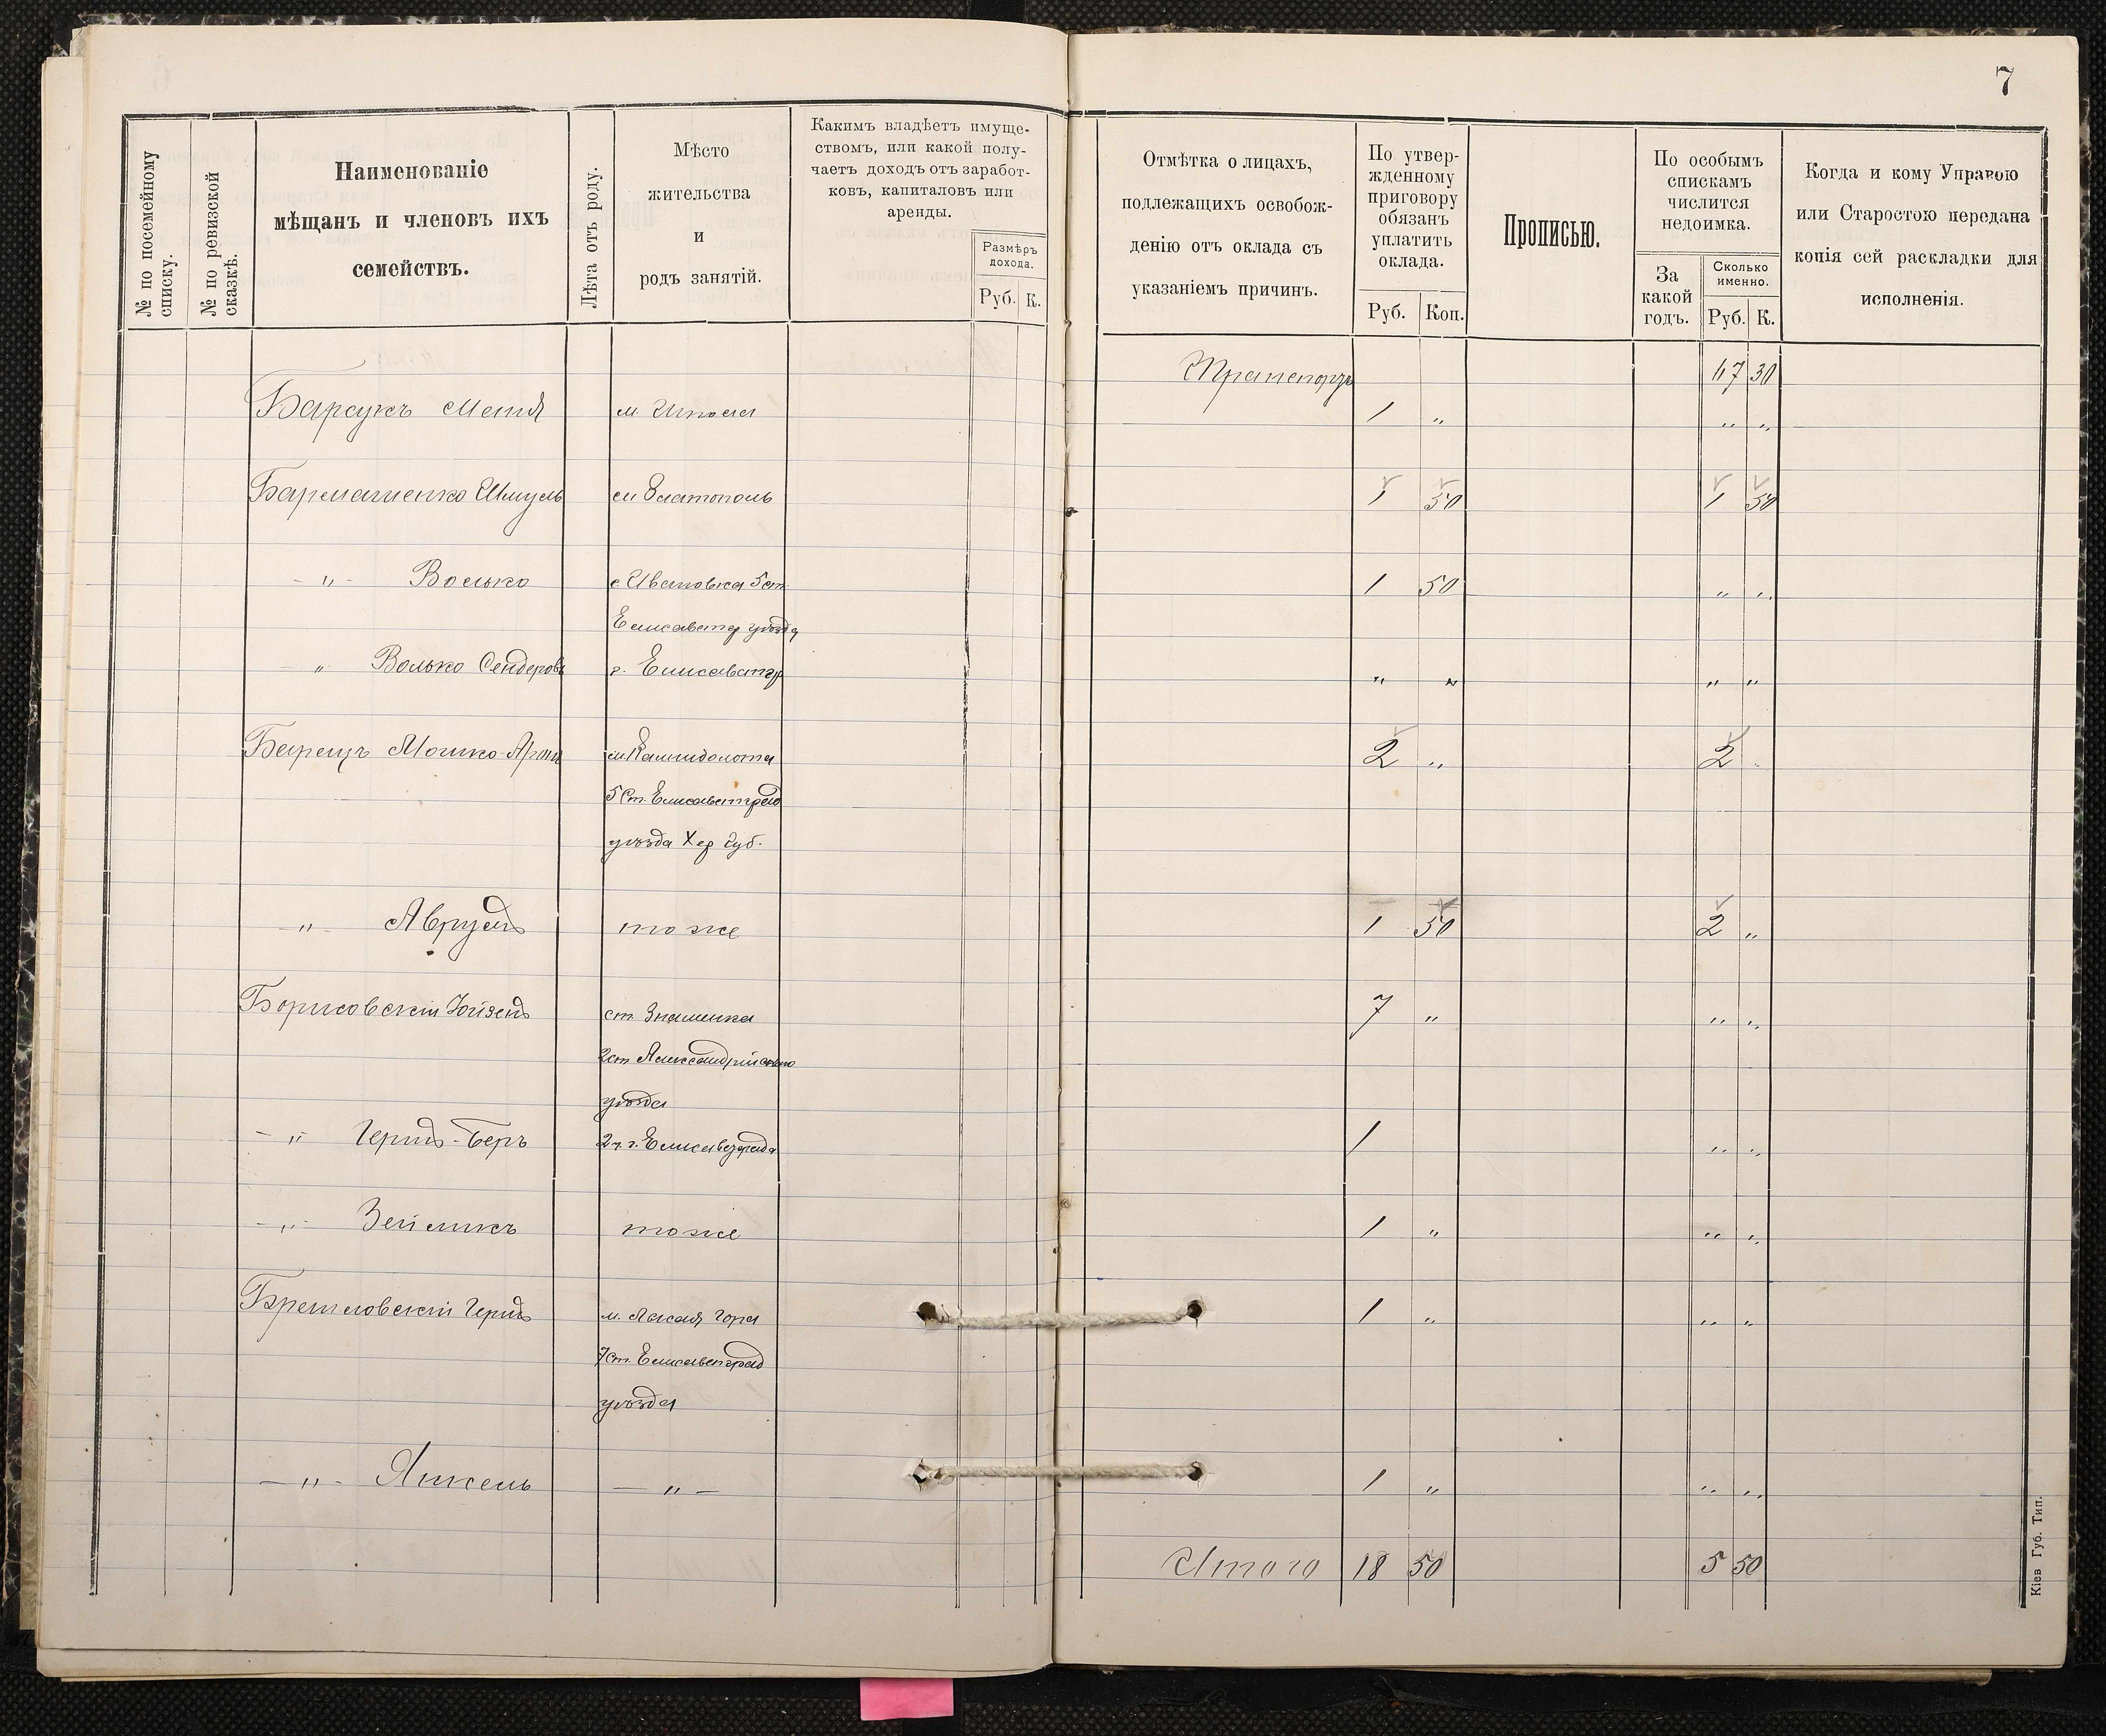 7
№ по посемейному списку.
№ по ревизской сказкѣ.
Наименованіе
мѣщанъ и членовъ ихъ
семействъ.
Лѣта отъ роду.
Мѣсто
жительства
и
родъ занятій.
Какимъ владѣетъ имуще-
ствомъ, или какой полу-
чаетъ доходъ отъ заработ-
ковъ, капиталовъ или
аренды.
Размѣръ
дохода.
Руб. К.
Отмѣтка о лицахъ,
подлежащихъ освобож-
денію отъ оклада съ
указаніемъ причинъ.
По утвер-
жденному
приговору
обязанъ
уплатить
оклада.
Руб. Коп.
Прописью.
По особымъ
спискамъ
числится
недоимка.
За
какой
годъ.
Сколько
именно.
Руб. К.
Когда и кому Управою
или Старостою передана
копія сей раскладки для
исполненія.
Транспортъ 30
Барсукъ м. Шпола 1 „ „ „
Бармашенко Шмуль м Златополь 1 50 1 50
- „ - Волько с. Ивановка 5 ст. 1 50 „ „
Елисаветгр уѣзда
„ Волько Сендеровъ г. Елисаветгр „ „ „ „
Берецъ Мошко-Аронъ 2 „ 2 „
5 ст. Елисаветград
уѣзда Хер губ.
- „ - Аврумъ тоже 1 50 2 „
Борисовскій ст. Знаменка 7 „ „ „
2 ст Александрійскаго
уѣзда
- „ - Гершъ-Беръ 2 ч. г. Елисаветграда 1 „ „
- „ - Зейликъ тоже 1 „ „ „
Герш м. Лысая Гора 1 „ „ „
7 ст. Елисаветград
уѣзда
- „ - Янкель - „ - 1 „ „ „
Итого 18 50 5 50
Кіев Губ. Тип.